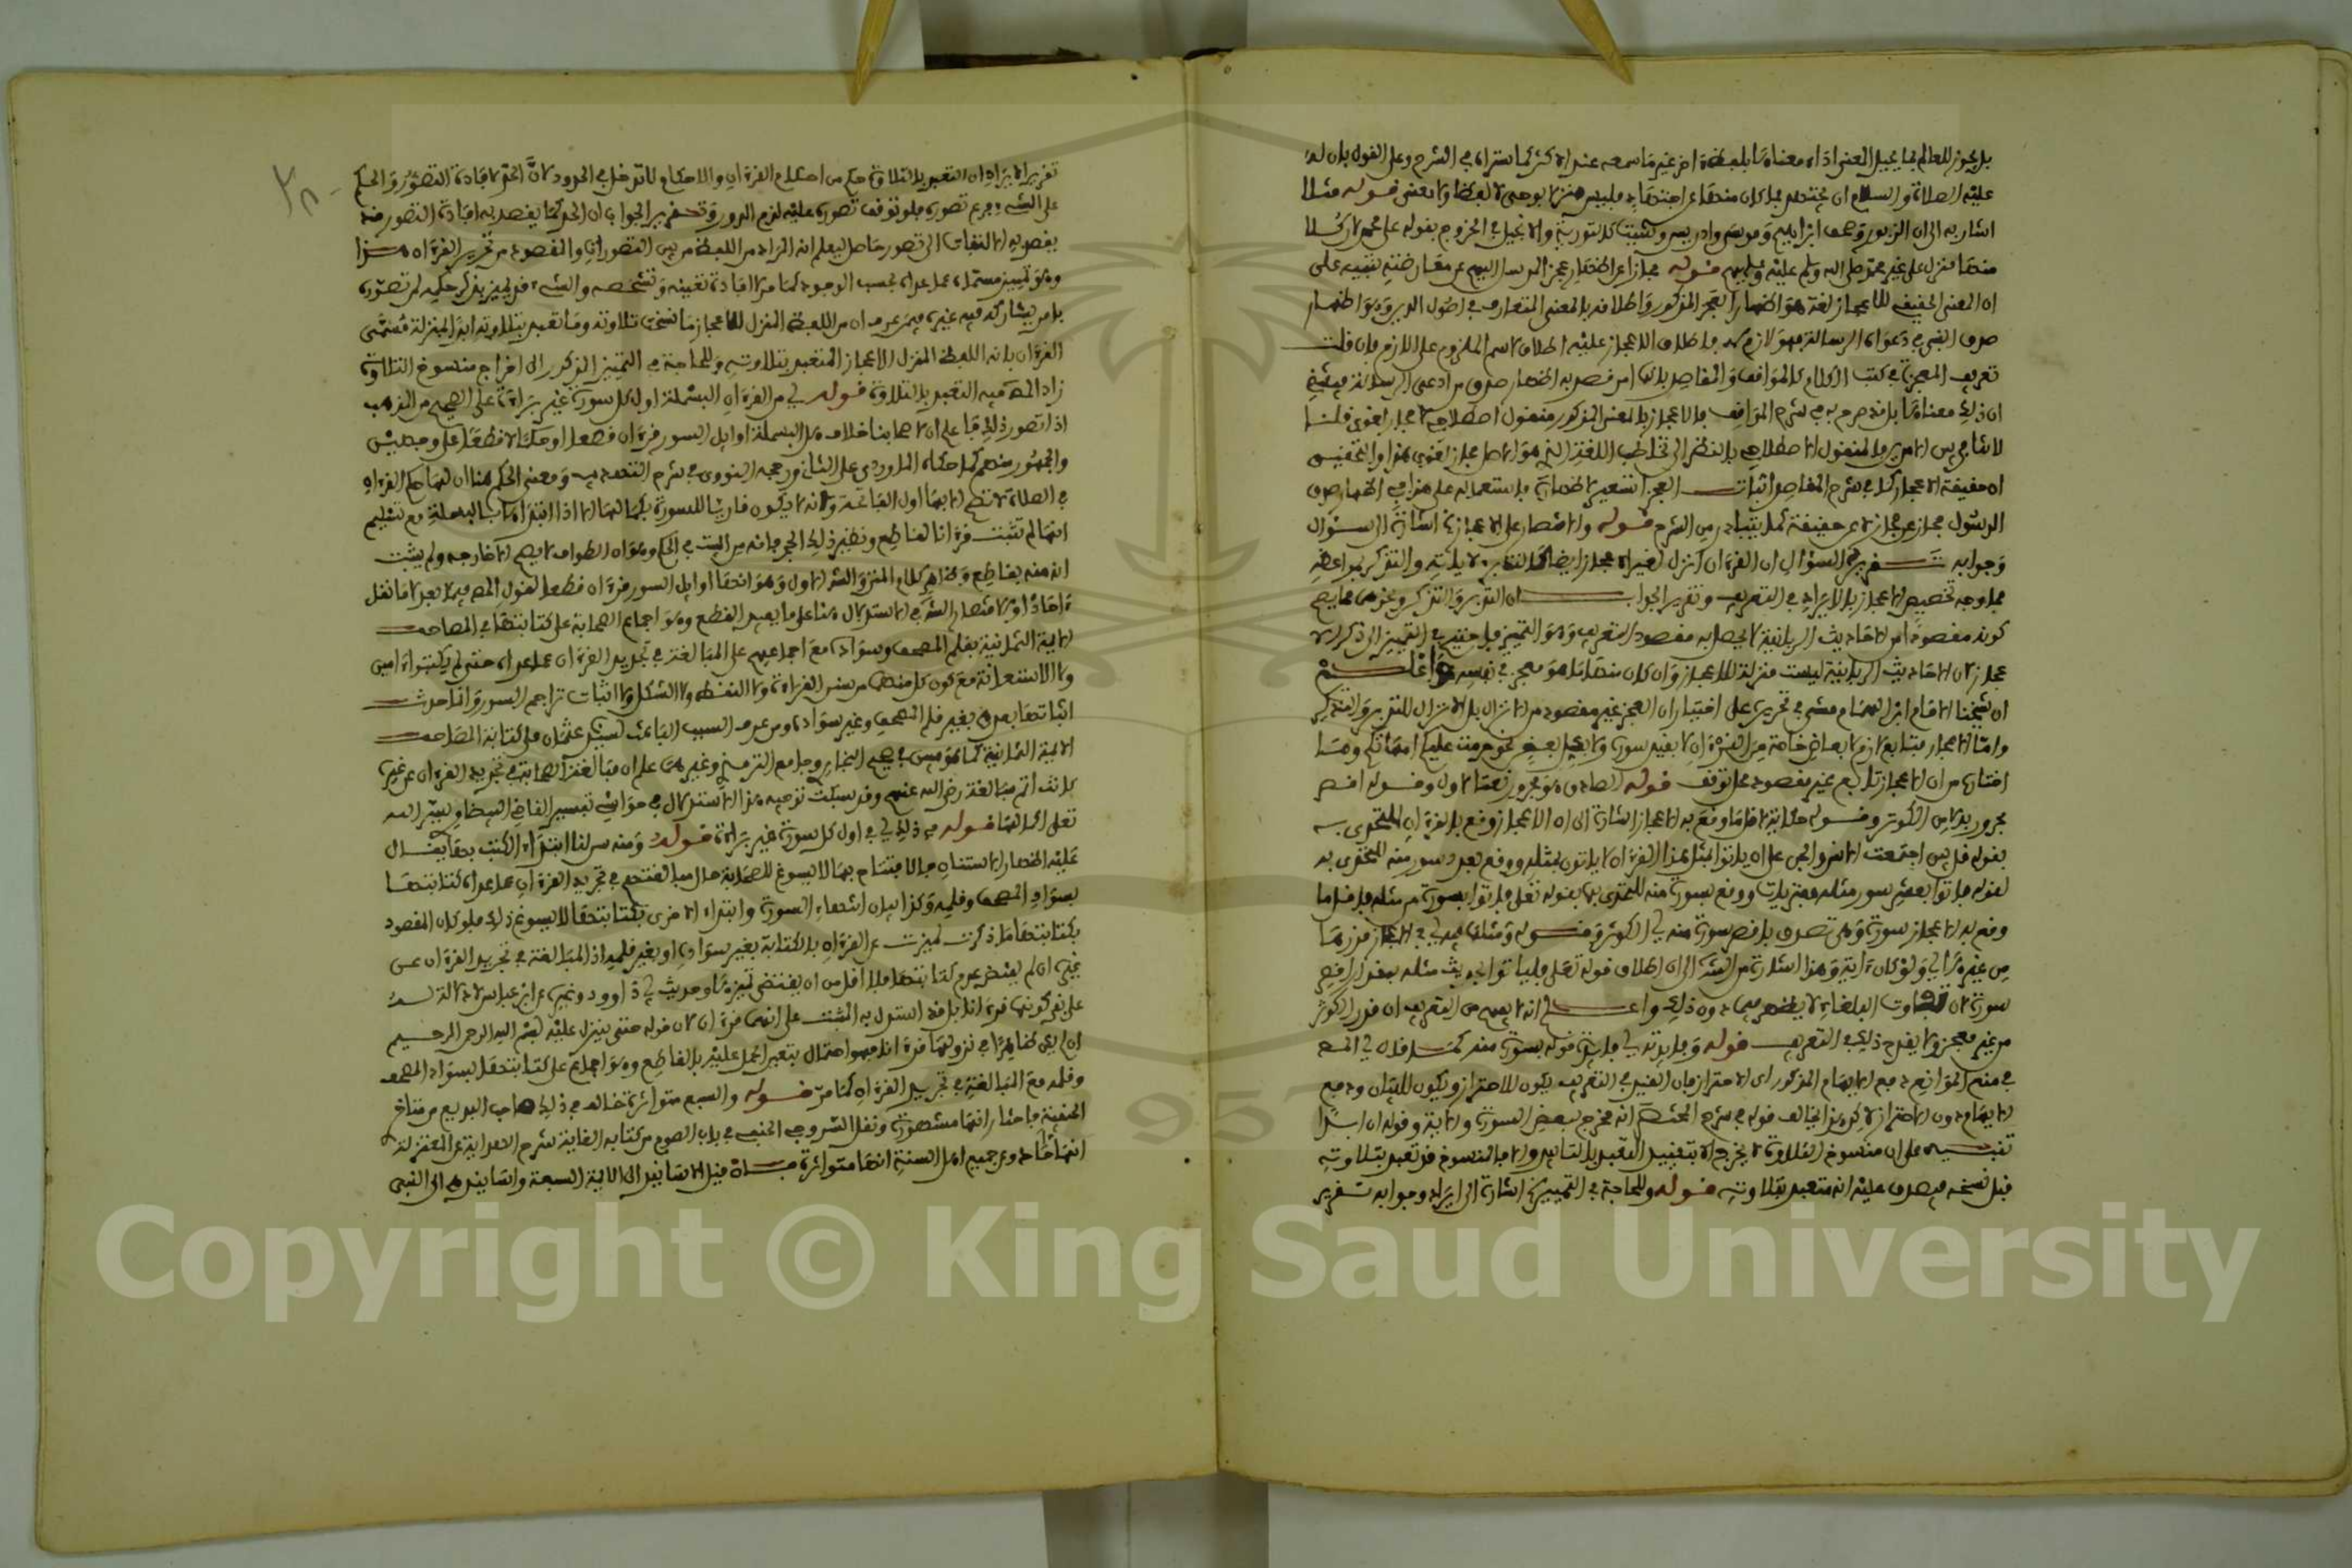 بل يجوز للعالم بما يحيل المعنى اداء معناها بلفظ اخر غير ما سمعه عند الاكثر كما ستراه في الشرح وعلى القول بان له
عليه الصلاة والسلام ان يجتهد فما كان منها عن اجتهاد فليس منزلا بوحي لا لفظا ولا معنى قوله مثلا
اشار به الى ان الزبور وصحف ابراهيم وموسى وادريس وشيث كالتورية والانجيل في الخروج بقوله على محمد لان كلا
منها منزل على غير محمد صلى الله وسلم عليه وعليهم قوله مجازا عن اظهار عجز المرسل اليهم عن معارضته تنبيه على
ان المعنى الحقيقي للاعجاز لغة هو اظهار العجز المذكور واطلاقه بالمعنى المتعارف في اصول الدين وهو اظهار
صدق النبي في دعواه الرسالة فهو لازم له فاطلاق الاعجاز عليه اطلاق لاسم الملزوم على اللازم فان قلت
تعريف المعجزة في كتب الكلام كالمواقف والمقاصد بانها امر قصد به اظهار صدق من ادعى الرسالة فيقتضي
ان ذلك معناها بل قد صرح به في شرح المواقف فالاعجاز بالمعنى المذكور منقول اصطلاحي لا مجاز لغوي قلنا
لا تنافي بين الامرين فالمنقول الاصطلاحي بالنظر الى تخاطب اللغة الذي هو الاصل مجاز لغوي هذا والتحقيق
ان حقيقة الاعجاز كما في شرح المقاصد اثبات العجز استعير لاظهاره فاستعماله على هذا في اظهار صدق
الرسول مجاز عن مجاز لا عن حقيقة كما يتبادر من الشرح قوله والاقتصار على الاعجاز اشارة الى سؤال
وجوابه تقرير السؤال ان القرءان انزل لغير الاعجاز ايضا كالتدبر لاياته والتذكر بمواعظه
فما وجه تخصيص الاعجاز بالايراد في التعريف وتقرير الجواب ان التدبر والتذكر ونحوهما مما يصح
كونه مقصودا من الاحاديث الربانية لا يحصل به مقصود التعريف وهو التمييز فاحتيج في التمييز الى ذكر الا
عجاز لان الاحاديث الربانية ليست منزلة للاعجاز وان كان منها ما هو معجز في نفسه واعلم
ان شيخنا الامام ابن الهمام مشى في تحريره على اختيار ان العجز غير مقصود من الانزال بل الانزال للتدبر والتذكر
واما الاعجاز فتابع لازم لابعاض خاصة من القرءان لا بقيد سورة ولا بكل بعض نحو حرمت عليكم امهاتكم وما
اختاره من ان الاعجاز تابع غير مقصود محل توقف قوله الصادق هو مجرور نعتا لاول وقوله اقصر
مجرور بدلا من الكوثر وقوله حكاية لاقل ما وقع به الاعجاز اشارة الى ان الاعجاز وقع بالقرءان المتحدى به
بقوله قل لئن اجتمعت الانس والجن على ان ياتوا بمثل هذا القرءان لا ياتون بمثله ووقع بعشر سور منه المتحدى به
لقوله فاتوا بعشر سور مثله مفتريات ووقع بسورة منه المتحدى بها بقوله تعلى فاتوا بسورة من مثله فاقل ما
وقع به الاعجاز سورة وهي تصدق باقصر سورة منه اي الكوثر وقوله ومثلها فيه اي في الاعجاز قدرها
من غيرها اي ولو كان ءاية وهذا اشارة من الش الى ان اطلاق قوله تعلى فلياتوا بحديث مثله بمقدار اقصر
سورة لان تفاوت البلغاء لا يظهر فيما دون ذلك واعلم انه لا يفهم من التعريف ان قدر الكوثر
من غير معجز ولا يقدح ذلك في التعريف قوله وفايدته اي فايدة قوله بسورة منه كما قال في المص
في منع الموانع دفع الايهام المذكور اي الاحتراز فان القيد في التعريف يكون للاحتراز ويكون للبيان ودفع
الايهام دون الاحتراز لاكن هذا يخالف قوله في شرح المختصر انه مخرج لبعض السورة والاية وقوله ان ابدا
تنبيه على ان منسوخ التلاوة لا يخرج الا بتقييد التعبد بالتابيد والا فالمنسوخ قد تعبد بتلاوته
قبل نسخه فيصدق عليه انه متعبد بتلاوته قوله وللحاجة في التمييز اشارة الى ايراد وجوابه تقرير
تقرير الايراد ان التعبد بالتلاوة حكم من احكام القرءان والاحكام لا تدخل في الحدود لان الحد لافادة التصور والحكم
على الشيء فرع تصوره فلو توقف تصوره عليه لزم الدور وتقرير الجواب ان الحد كما يقصد به افادة التصور قد
يقصد به الالتفات الى تصور حاصل ليعلم انه المراد من اللفظ من بين التصورات والمقصود من تحرير القرءان هذا
وهو تمييز مسماه عما عداه بحسب الوجود كما مر لا افادة تعيينه وتشخصه والشيء قد يميز بذكر حكمه لمن تصوره
بامر يشاركه فيه غيره فمن عرف ان من اللفظ المنزل للاعجاز ما نسخت تلاوته وما تعبد بتلاوته ابدا لم يميز له مسمى
القرءان بانه اللفظ المنزل للاعجاز المتعبد بتلاوته وللحاجة في التمييز المذكور الى اخراج منسوخ التلاوة
زاد المص فيه التعبد بالتلاوة قوله اي من القرءان البسملة اول كل سورة غير براءة على الصحيح من المذهب
اذا تصور ذلك فاعلم ان لاصحابنا خلافا هل البسملة اوايل السور قرءان قطعا او حكما لا قطعا على وجهين
والجمهور منهم كما حكاه الماوردي على الثاني ورجحه النووي في شرح المهذب ومعنى الحكم هنا ان لها حكم القرءان
في الصلاة لا تصح الا بها اول الفاتحة ولانه لا يكون قاريا للسورة بكمالها الا اذا ابتداها بالبسملة مع تسليم
انها لم تثبت قرءانا لقاطع ونظير ذلك الحجر فانه من البيت في الحكم وهو ان الطواف لا يصح الا خارجه ولم يثبت
انه منه بقاطع وظاهر كلام المتن والش الاول وهو انها اوايل السور قرءان قطعا لقول المص فيما بعد لا ما نقل
ءاحادا ولاقتصار الش في الاستدلال هنا على ما يفيد القطع وهو اجماع الصحابة على كتابتها في المصاحف
الايمة الثمانية بقلم المصحف وسواده مع اجماعهم على المبالغة في تجريد القرءان عما عداه حتى لم يكتبوا ءامين
ولا الاستعاذة مع كون كل منهما من سنن القراءة ولا النقط ولا الشكل ولا اثبات تراجم السور وانما حدث
اثباتها بعدهم بغير قلم المصحف وغير سواده ومن عرف السبب الباعث لسيدنا عثمان على كتابة المصاحف
الايمة الثمانية كما هو مبين في صحيح البخاري وجامع الترمذي وغيرهما علم ان مبالغة الصحابة في تجريد القرءان عن غيره
كانت اتم مبالغة رضي الله عنهم وقد بسطت توجيه هذا الاستدلال في حواشي تفسير القاضي البيضاوي يسر الله
تعلى اكمالها قوله في ذلك اي في اول كل سورة غير براءة قوله ومنه سن لنا ابتداء الكتب بها يقال
عليه اظهار الاستنان في الافتتاح بها لا يسوغ للصحابة حال مبالغتهم في تجريد القرءان عما عداه كتابتها
بسواد المصحف وقلمه وكذا بيان انتهاء السورة وابتداء الاخرى بكتابتها لا يسوغ ذلك فلو كان المقصود
بكتابتها ما ذكرت لميزت عن القرءان بالكتابة بغير سواده او بغير قلمه اذ المبالغة في تجريد القرءان عن
غيره ان لم يقتض عدم كتابتها فلا اقل من ان يقتضي تمييزها وحديث ابي داوود وغيره عن ابن عباس لا دلالة له
على نفي كونها قرءانا بل قد استدل به المثبت على انها قرءان لان قوله حتى ينزل عليه بسم الله الرحمن الرحيم
ان لم يكن ظاهرا في نزولها قرءانا فهو احتمال يتعين الحمل عليه بالقاطع وهو اجماع على كتابتها بسواد المصحف
وقلمه مع المبالغة في تجريد القرءان كما مر قوله والسبع متواترة خالف في ذلك صاحب البديع من متاخري
الحنفية فاختار انها مشهورة ونقل السروجي الحنفي في باب الصوم من كتابه الغاية شرح الهداية عن المعتزلة
انها ءاحاد وعن جميع اهل السنة انها متواترة فان قيل الاسانيد الى الايمة السبعة واسانيدهم الى النبي